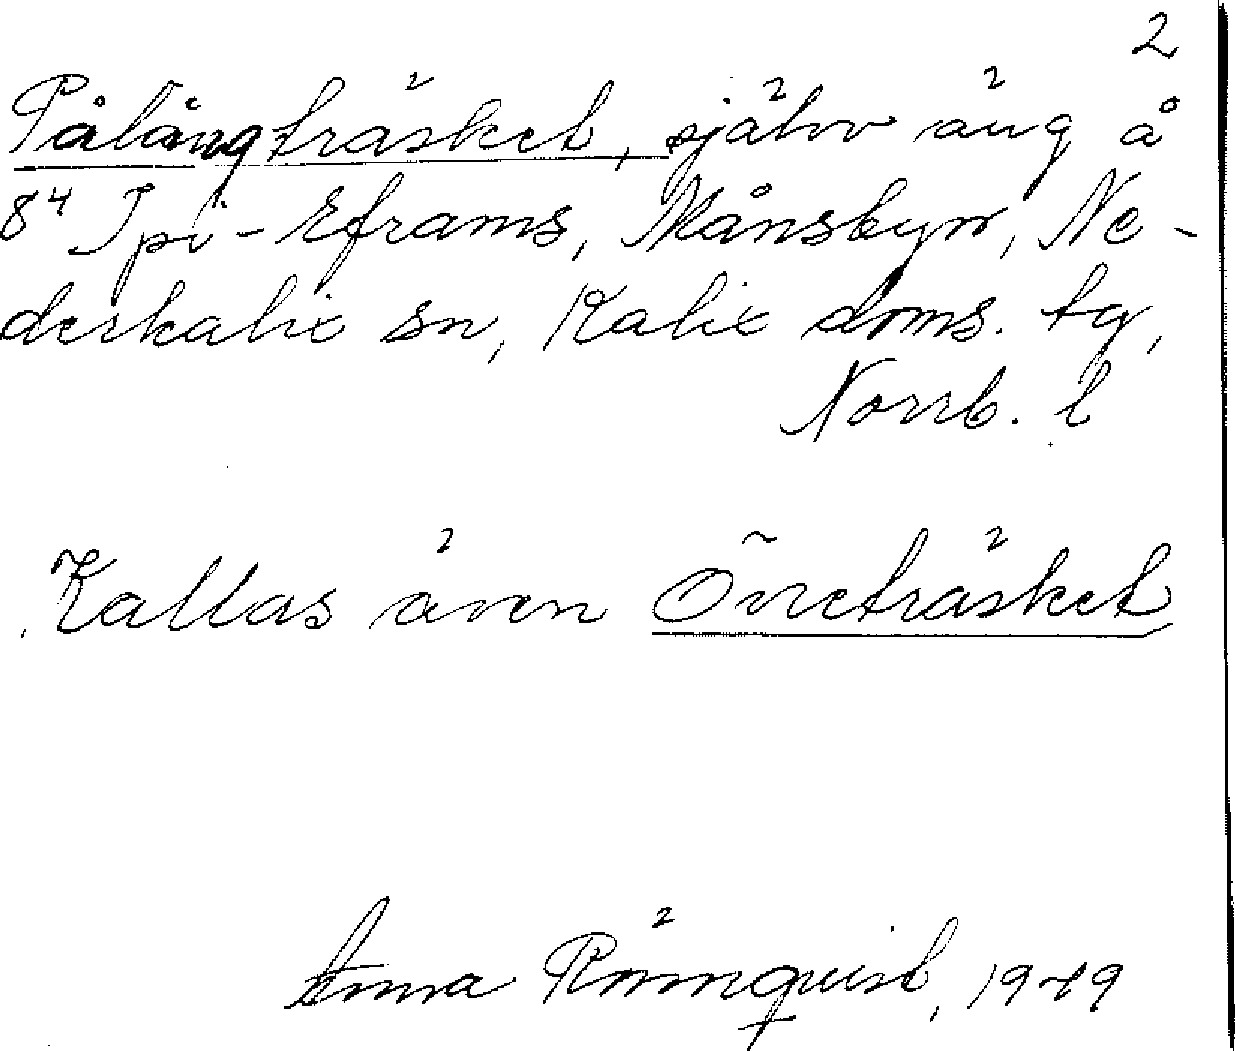 2
Pålångträsket, självv äng å
8⁴ Spi-Eframs, Månsbyn, Ne-
derkalix sn, Kalix doms. tg,
Norrb. l
Kallas även Överträsket
Anna Rönnquist, 1949